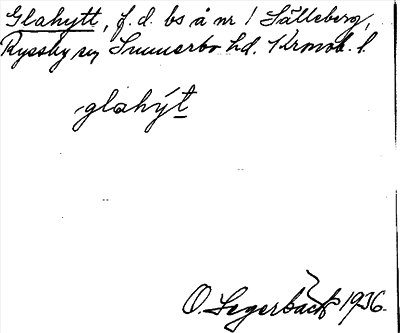 Glahytt, f.d. bs å nr 1 Sälleberg,
Ryssby sn Sunnerbo hd. Kronob. l.
glahýt
O. Segerbäck 1936.